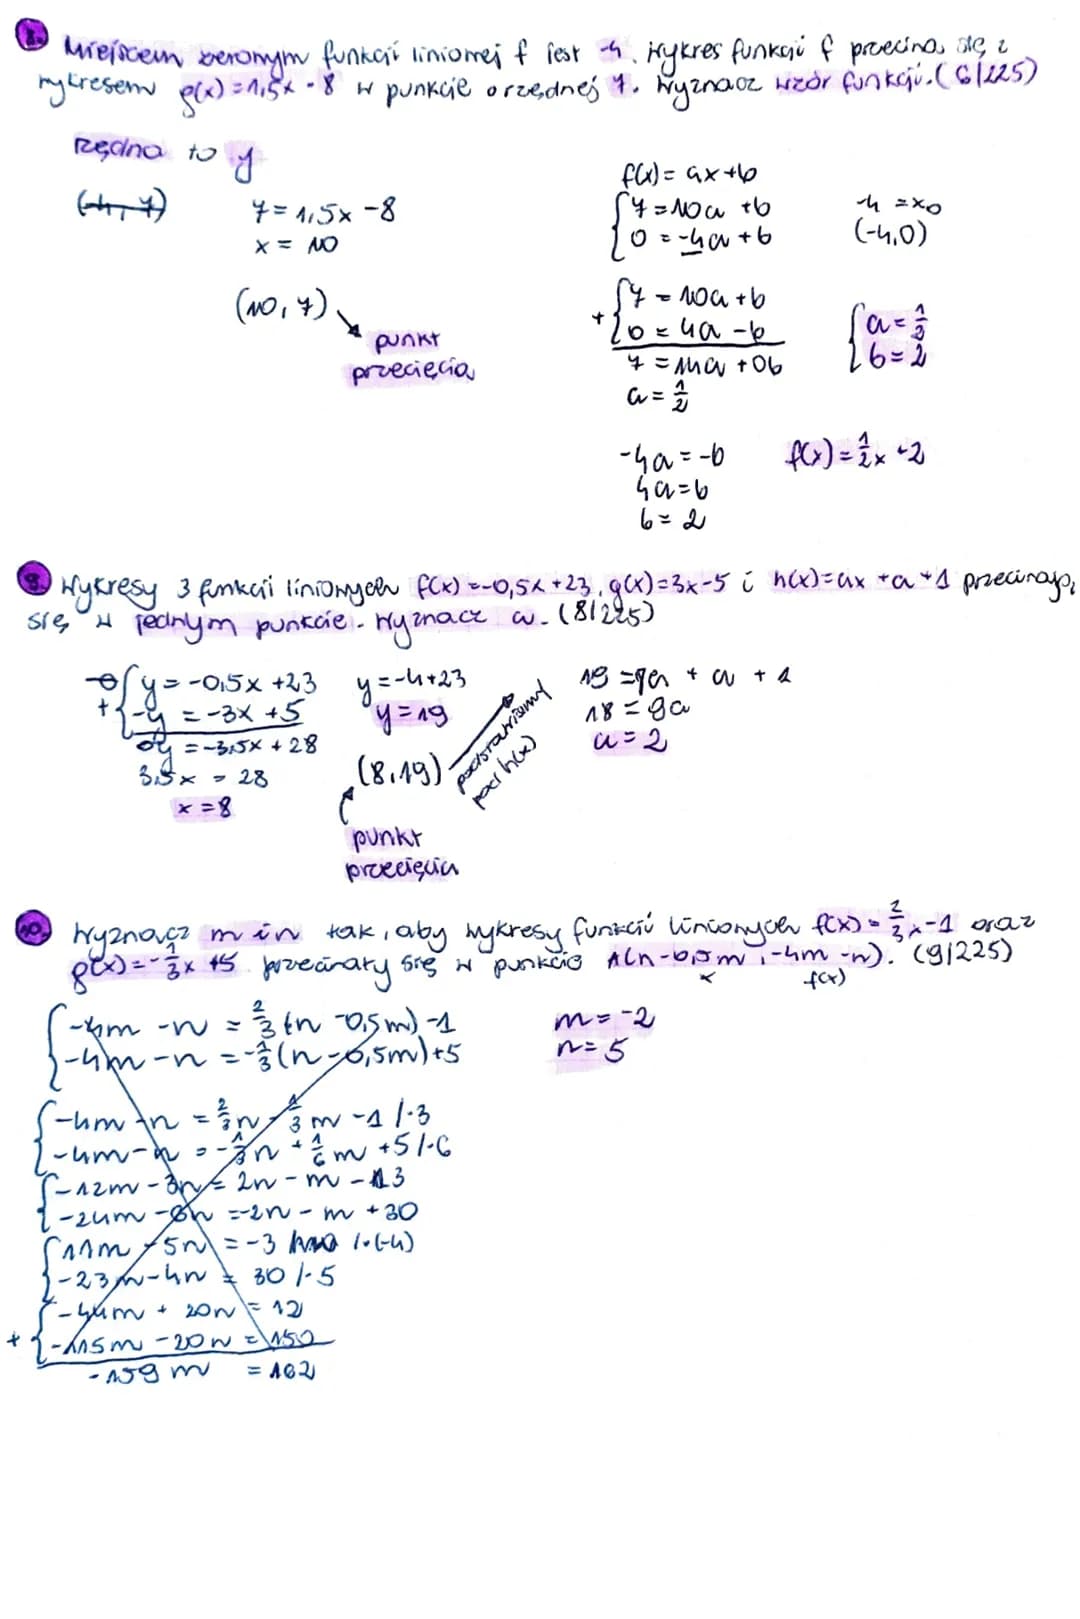 8. Miejscem zerowym funkcji liniowej f jest -4. Wykres funkcji f przecina się z
wykresem g(x)=1,5x-8 w punkcie o rzędnej 7. Wyznacz wzór funkcji. (6/225)
rzędna to y
(-4, 7)
7=1,5x-8
x= 10
(10,7)
punkt
przecięcia
f(x)= ax+b
7=10a+b
0=-4a+b
-4=x₀
(-4,0)
+
7=10a+b
0=4a-b
7=14a+0b
a=1/2
a=1/2
b=2
-4a=-b
4a=b
b=2
f(x)=1/2x+2
9. Wykresy 3 funkcji liniowych f(x)=-0,5x+23, g(x)=3x-5 i h(x)=ax+a+1 przecinają
się w jednym punkcie. Wyznacz a. (8/225)
y=-0,5x+23
+ -y=-3x+5
0y=-3,5x+28
3,5x=28
x=8
y=-4+23
y=19
(8,19)
punkt
przecięcia
podstawiamy
pod h(x)
19=8a+a+1
18=9a
a=2
10. Wyznacz m i n tak, aby wykresy funkcji liniowych f(x)=2/3x-1 oraz
g(x)=-1/3x+5 przecinały się w punkcie A(n-0,5m, -4m-n). (9/225)
x f(x)
-4m-n=2/3(n-0,5m)-1
-4m-n=-1/3(n-0,5m)+5
m=-2
n=5
-4m-n=2/3n-1/3m-1 /·3
-4m-n=-1/3n+1/6m+5 /·6
-12m-3n=2n-m-3
-24m-6n=-2n-m+30
11m-5n=-3 /·(-4)
-23m-4n=30 /·5
-44m+20n=12
+ -115m-20n=150
-159m=162